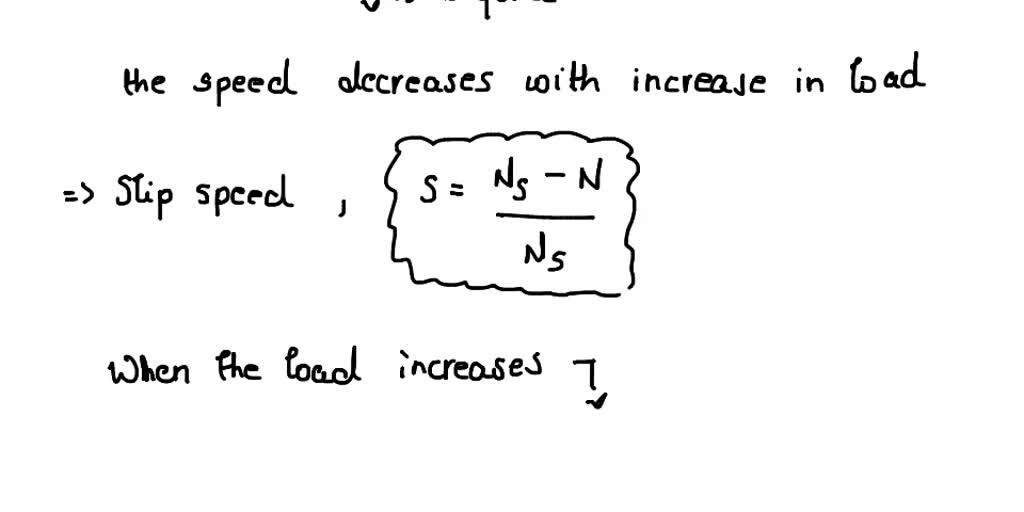 the speed decreases with increase in load
=> Slip speed , S = Ns - N / Ns
When the load increases